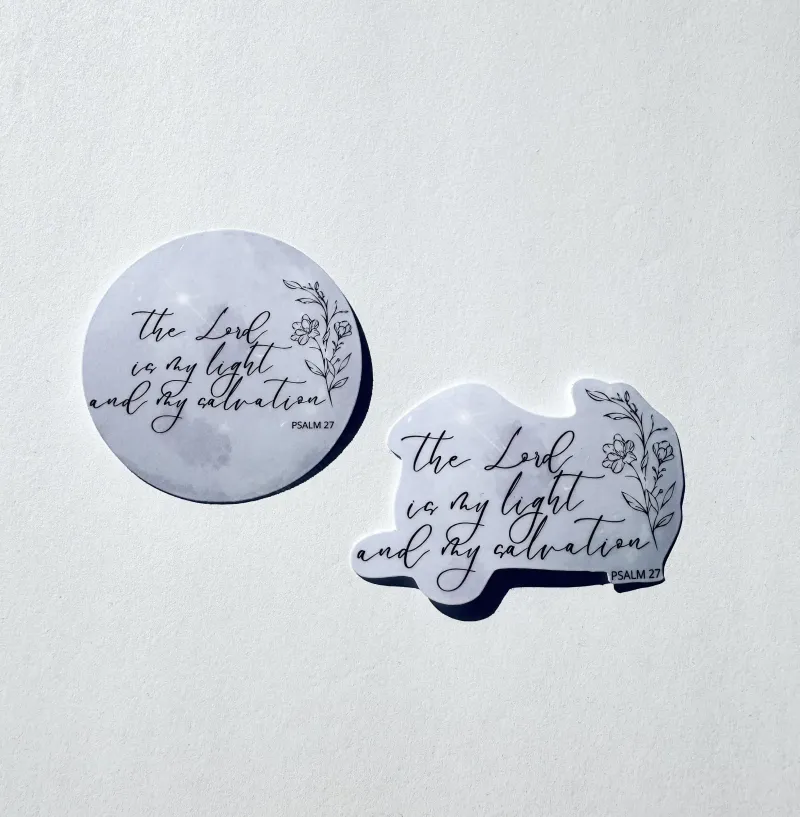 the Lord
is my light
and my salvation
PSALM 27
the Lord
is my light
and my salvation
PSALM 27